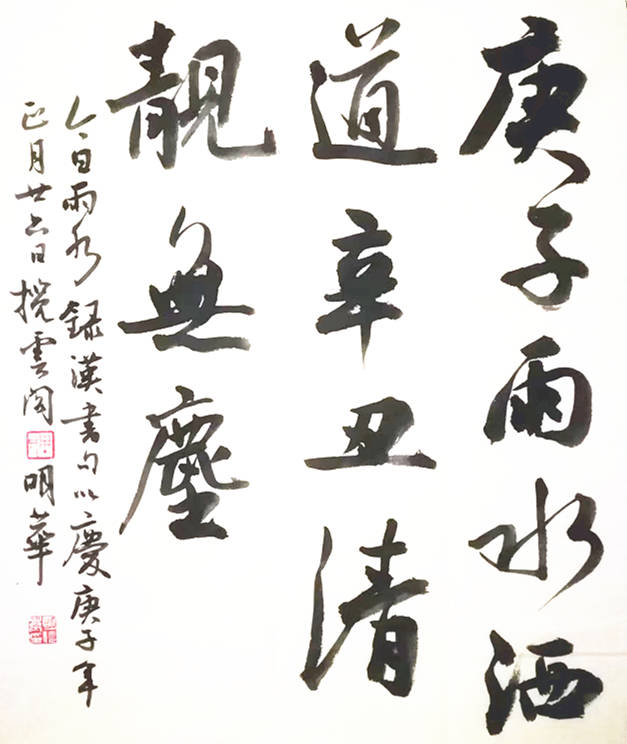 庚子雨水洒
道辛丑清
靓無塵
今日雨水錄漢書句以慶庚子年
正月廿六日攬雲閣
明華